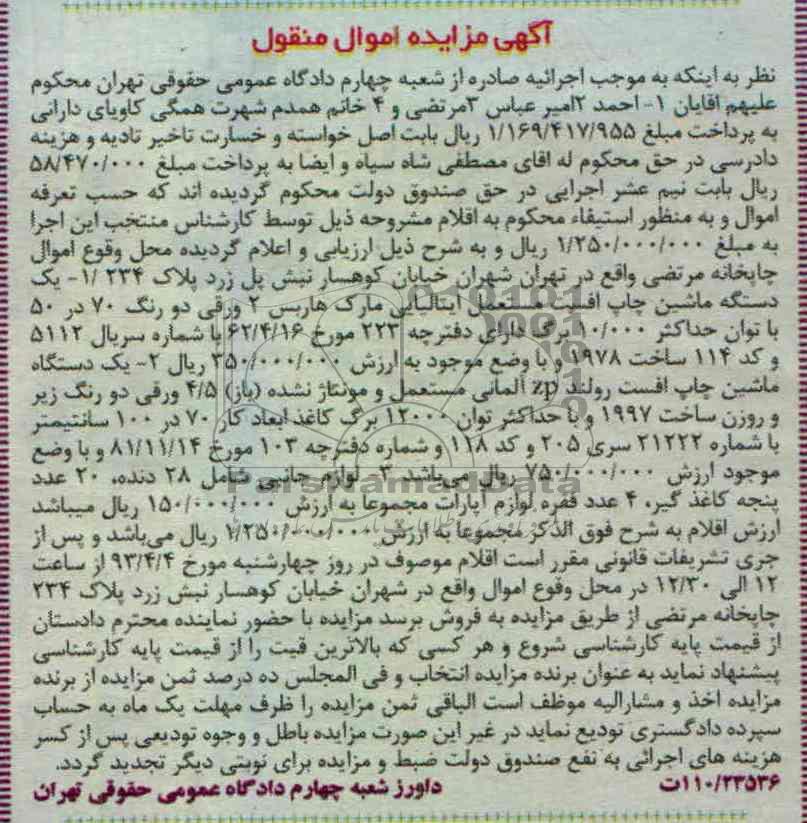 آگهی مزایده اموال منقول
نظر به اینکه به موجب اجرائیه صادره از شعبه چهارم دادگاه عمومی حقوقی تهران محکوم
علیهم اقایان ۱- احمد ۲امیر عباس ۳مرتضی و ۴ خانم همدم شهرت همگی کاویای دارانی
به پرداخت مبلغ ۱/۱۶۹/۴۱۷/۹۵۵ ریال بابت اصل خواسته و خسارت تاخیر تادیه و هزینه
دادرسی در حق محکوم له اقای مصطفی شاه سیاه و ایضا به پرداخت مبلغ ۵۸/۴۷۰/۰۰۰
ریال بابت نیم عشر اجرایی در حق صندوق دولت محکوم گردیده اند که حسب تعرفه
اموال و به منظور استیفاء محکوم به اقلام مشروحه ذیل توسط کارشناس منتخب این اجرا
به مبلغ ۱/۲۵۰/۰۰۰/۰۰۰ ریال و به شرح ذیل ارزیابی و اعلام گردیده محل وقوع اموال
چاپخانه مرتضی واقع در تهران شهران خیابان کوهسار نبش پل زرد پلاک ۲۳۴ /۱- یک
دستگاه ماشین چاپ افست مستعمل ایتالیایی مارک هاریس ۲ ورقی دو رنگ ۷۰ در ۵۰
با توان حداکثر ۱۰/۰۰۰ برگ دارای دفترچه ۲۲۳ مورخ ۶۲/۴/۱۶ با شماره سریال ۵۱۱۲
و کد ۱۱۴ ساخت ۱۹۷۸ و با وضع موجود به ارزش ۳۵۰/۰۰۰/۰۰۰ ریال ۲- یک دستگاه
ماشین چاپ افست رولند zp آلمانی مستعمل و مونتاژ نشده (باز) ۴/۵ ورقی دو رنگ زیر
و روزن ساخت ۱۹۹۷ و با حداکثر توان ۱۲۰۰۰ برگ کاغذ ابعاد کار ۷۰ در ۱۰۰ سانتیمتر
با شماره ۲۱۲۲۲ سری ۲۰۵ و کد ۱۱۸ و شماره دفترچه ۱۰۳ مورخ ۸۱/۱۱/۱۴ و با وضع
موجود ارزش ۷۵۰/۰۰۰/۰۰۰ ریال می‌باشد ۳- لوازم جانبی شامل ۲۸ دنده، ۲۰ عدد
پنجه کاغذ گیر، ۴ عدد فقره لوازم آپارات مجموعا به ارزش ۱۵۰/۰۰۰/۰۰۰ ریال میباشد
ارزش اقلام به شرح فوق الذکر مجموعا به ارزش ۱/۲۵۰/۰۰۰/۰۰۰ ریال می‌باشد و پس از
جری تشریفات قانونی مقرر است اقلام موصوف در روز چهارشنبه مورخ ۹۳/۴/۴ از ساعت
۱۲ الی ۱۲/۳۰ در محل وقوع اموال واقع در شهران خیابان کوهسار نبش زرد پلاک ۲۳۴
چاپخانه مرتضی از طریق مزایده به فروش برسد مزایده با حضور نماینده محترم دادستان
از قیمت پایه کارشناسی شروع و هر کسی که بالاترین قیت را از قیمت پایه کارشناسی
پیشنهاد نماید به عنوان برنده مزایده انتخاب و فی المجلس ده درصد ثمن مزایده از برنده
مزایده اخذ و مشارالیه موظف است الباقی ثمن مزایده را ظرف مهلت یک ماه به حساب
سپرده دادگستری تودیع نماید در غیر این صورت مزایده باطل و وجوه تودیعی پس از کسر
هزینه های اجرائی به نفع صندوق دولت ضبط و مزایده برای نوبتی دیگر تجدید گردد.
۱۱۰/۲۳۵۳۶ت داورز شعبه چهارم دادگاه عمومی حقوقی تهران
ParsNamadData